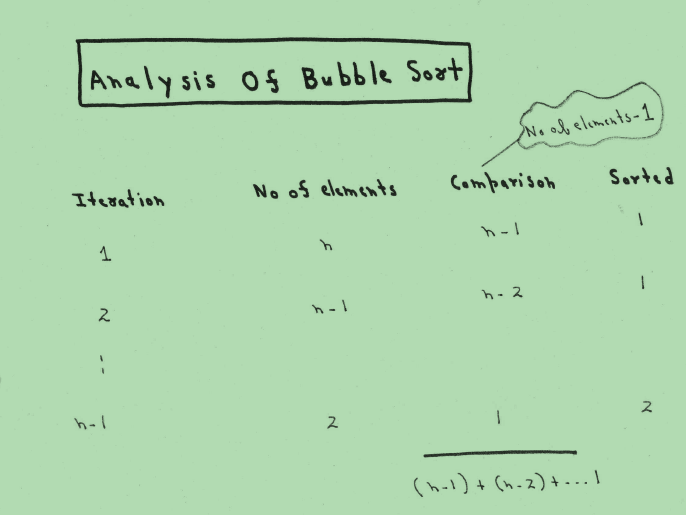 Analysis Of Bubble Sort
No of elements-1
Iteration No of elements Comparison Sorted
1 n n-1 1
2 n-1 n-2 1
n-1 2 1 2
(n-1) + (n-2) + ... 1